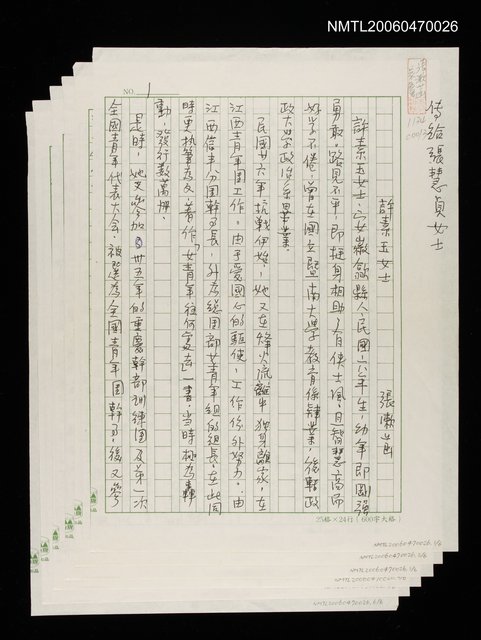 NMTL20060470026
傳給張慧貞女士
許素玉女士
張漱菡
許素玉女士，安徽歙縣人，民國一八年生，幼年即剛強
勇敢，路見不平，即挺身相助，有俠士風，且智慧高而
好學不倦，曾在國立暨南大學教育係肄業，後轉政
政大學政治系畢業。
民國廿六年抗戰伊始，她又在烽火流離中獨身離家，在
江西青年團工作，由于愛國心的驅使，工作份外努力，由
江西信丰分團幹事長，升為總團部女青年組的組長，在此同
時更執筆為文，著作「女青年往何處去」一書，當時極為轟
動，發行數萬冊。
是時，她又參加卅五年的重慶幹部訓練團及第一次
全國青年代表大会，被選為全國青年團幹事，後又參
NO. 1
25格×24行(600字大格)
NMTL20060470026, 1/6
NMTL20060470026, 2/6
NMTL20060470026, 6/6